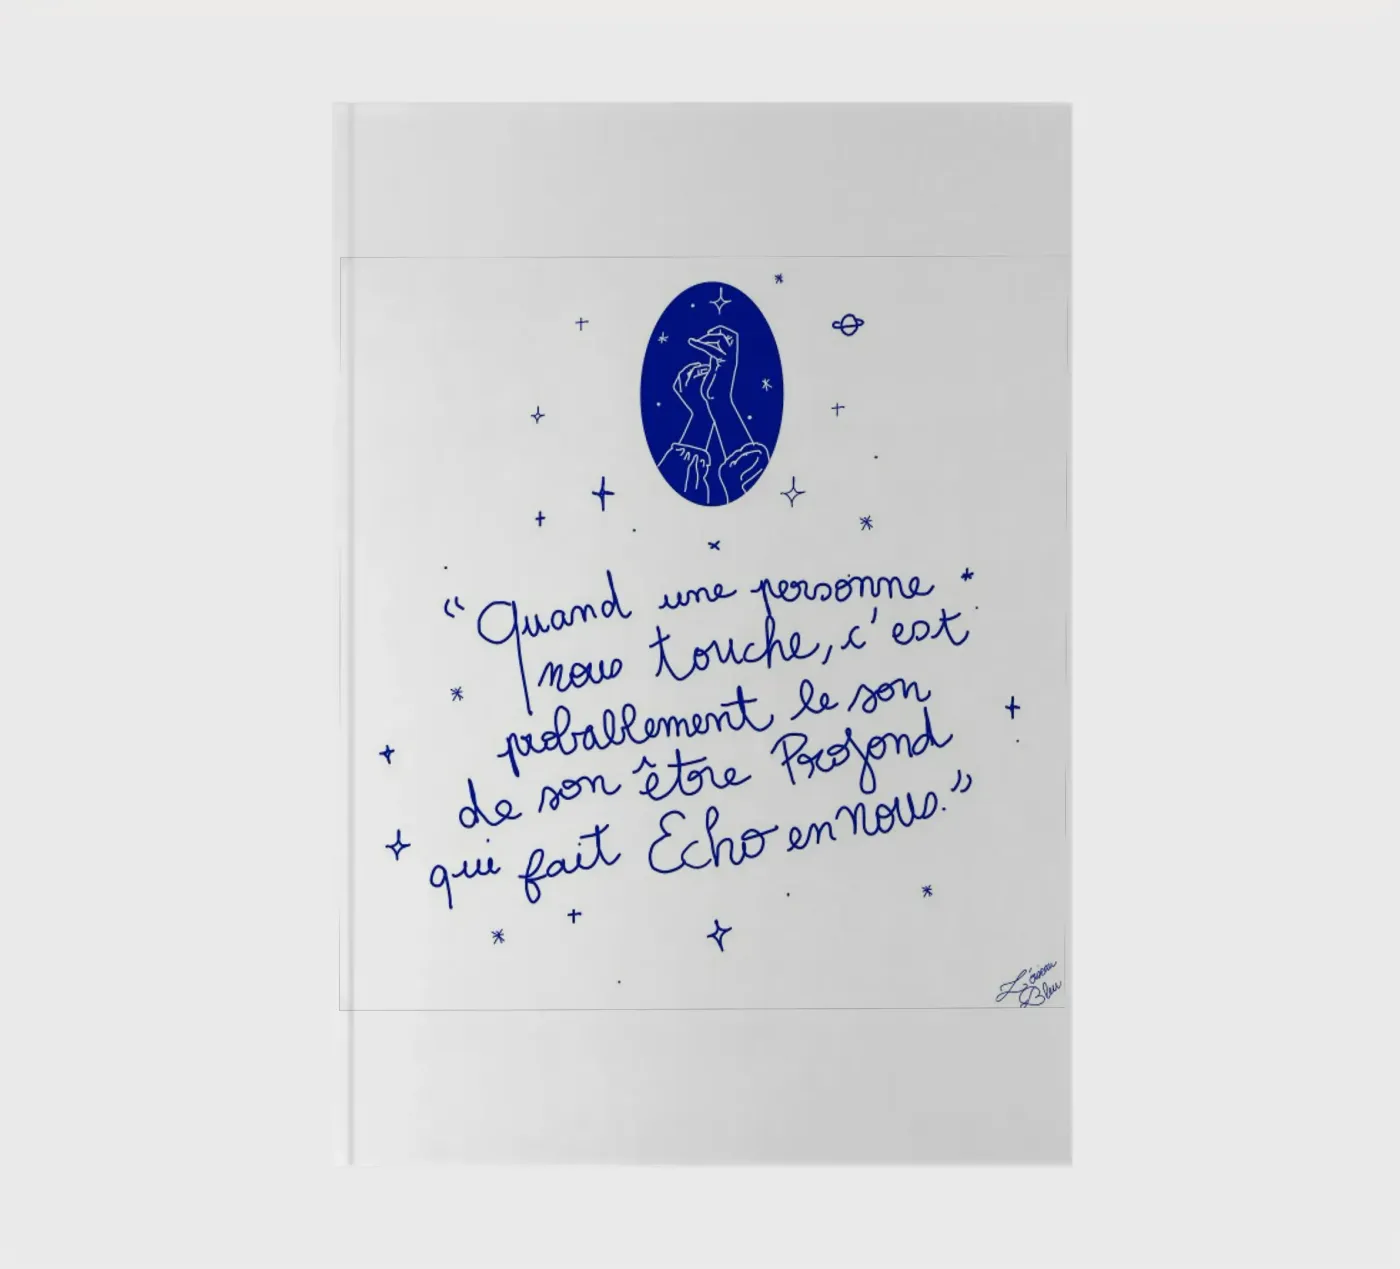 “Quand une personne
nous touche, c'est
probablement le son
de son être Profond
qui fait Echo en nous.”
L'oiseau
Bleu